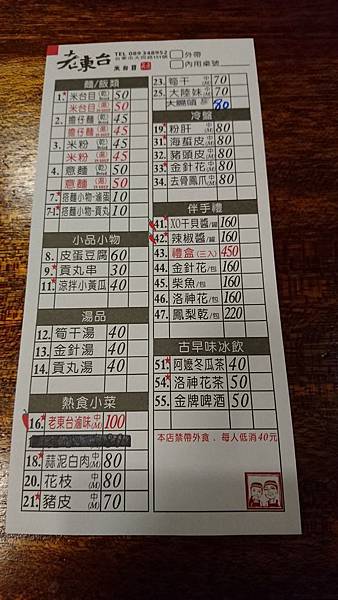 老東台
米台目
TEL 089348952
台東市大同路151號
外帶
內用桌號
麵/飯類
1. 米台目(乾) 50
米台目(湯) 50
2. 擔仔麵(乾) 45
擔仔麵(湯) 45
3. 米粉(乾) 45
米粉(湯) 45
4. 意麵(乾) 50
意麵(湯) 50
7. 搭麵小物-滷蛋 10
7-1 搭麵小物-貢丸 10
小品小物
8. 皮蛋豆腐 60
9. 貢丸串 30
11. 涼拌小黃瓜 40
湯品
12. 筍干湯 40
13. 金針湯 40
14. 貢丸湯 40
熱食小菜
16. 老東台滷味 中(M) 100
18. 蒜泥白肉 中(M) 80
20. 花枝 中(M) 80
21. 豬皮 中(M) 70
23. 筍干 中(M) 70
25. 大陸妹 中(M) 70
大腸頭 80
冷盤
19. 粉肝 中(M) 80
31. 海蜇皮 中(M) 80
32. 豬頭皮 中(M) 80
33. 金針花 中(M) 80
34. 去骨鳳爪 中(M) 80
伴手禮
41. XO干貝醬/罐 160
42. 辣椒醬/罐 160
43. 禮盒(三入) 450
44. 金針花/包 160
45. 柴魚/包 160
46. 洛神花/包 160
47. 鳳梨乾/包 220
古早味冰飲
51. 阿嬤冬瓜茶 40
54. 洛神花茶 50
55. 金牌啤酒 50
本店禁帶外食﹐每人低消40元